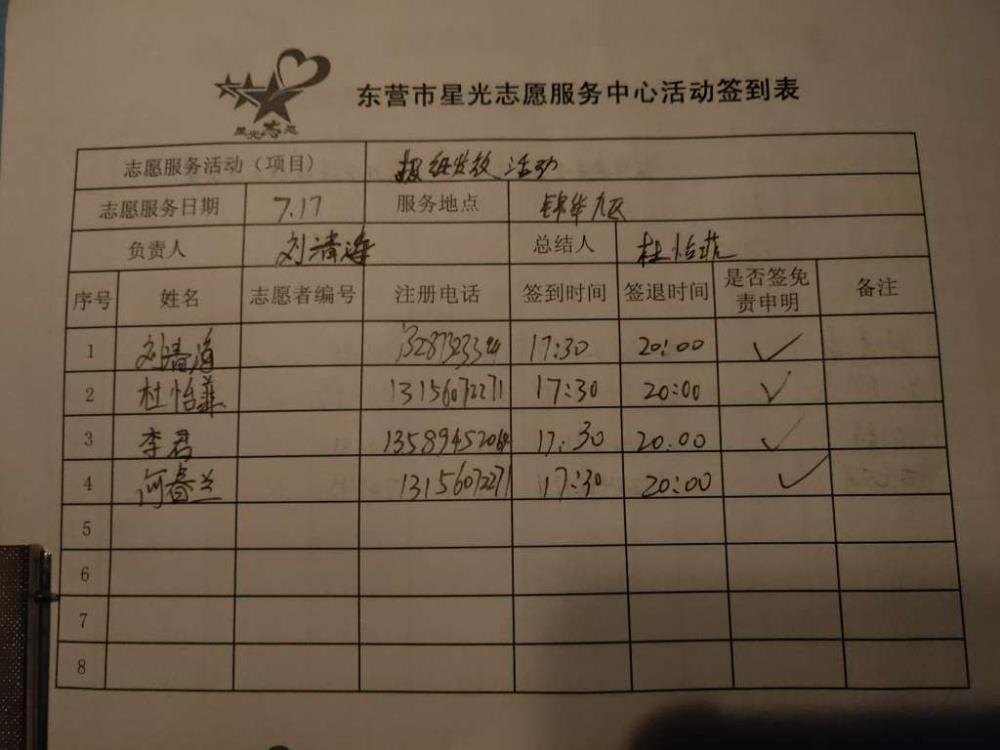 东营市星光志愿服务中心活动签到表
星光志愿
志愿服务活动（项目） 报纸发放活动
志愿服务日期 7.17 服务地点 锦华九区
负责人 刘清海 总结人 杜怡菲
序号 姓名 志愿者编号 注册电话 签到时间 签退时间 是否签免责申明 备注
1 刘清海 17:30 20:00 ✓
2 杜怡菲 13156072271 17:30 20:00 ✓
3 李君 13589452064 17:30 20:00 ✓
4 何春兰 13156072271 17:30 20:00 ✓
5
6
7
8